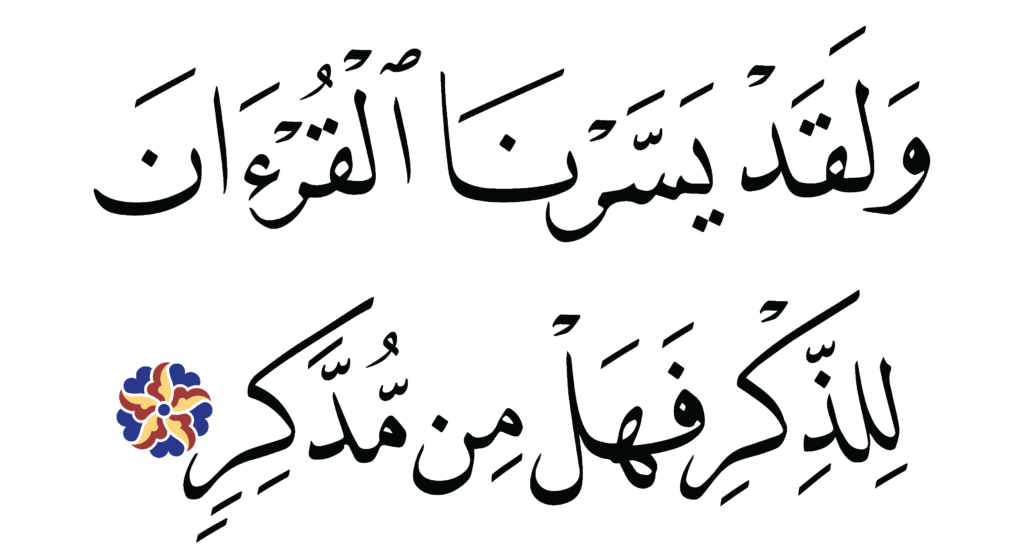 وَلَقَدْ يَسَّرْنَا ٱلْقُرْءَانَ
لِلذِّكْرِ فَهَلْ مِن مُّدَّكِرٍ